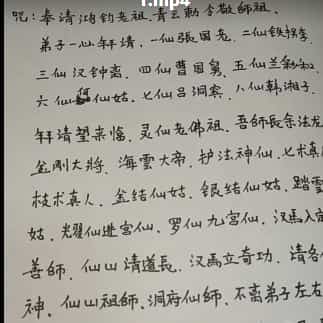 1.mp4
咒：奉请鸿钧老祖、青云勅令敬師祖、
弟子一心拜請、一仙張国老、二仙铁拐李、
三仙汉钟离、四仙曹国舅、五仙兰彩和、
六仙何仙姑、七仙吕洞宾、八仙韩湘子、
拜請望来临、灵仙老佛祖、吾師長余法龙
金剛大將、海雲大帝、护法神仙、七术真
枝术真人、金结仙姑、银结仙姑、踏雲
姑、耀仙进宫仙、罗仙九宫仙、汉馬入
善師、仙山清道長、汉馬立奇功、請各
神、仙山祖師、洞府仙師、不离弟子左右